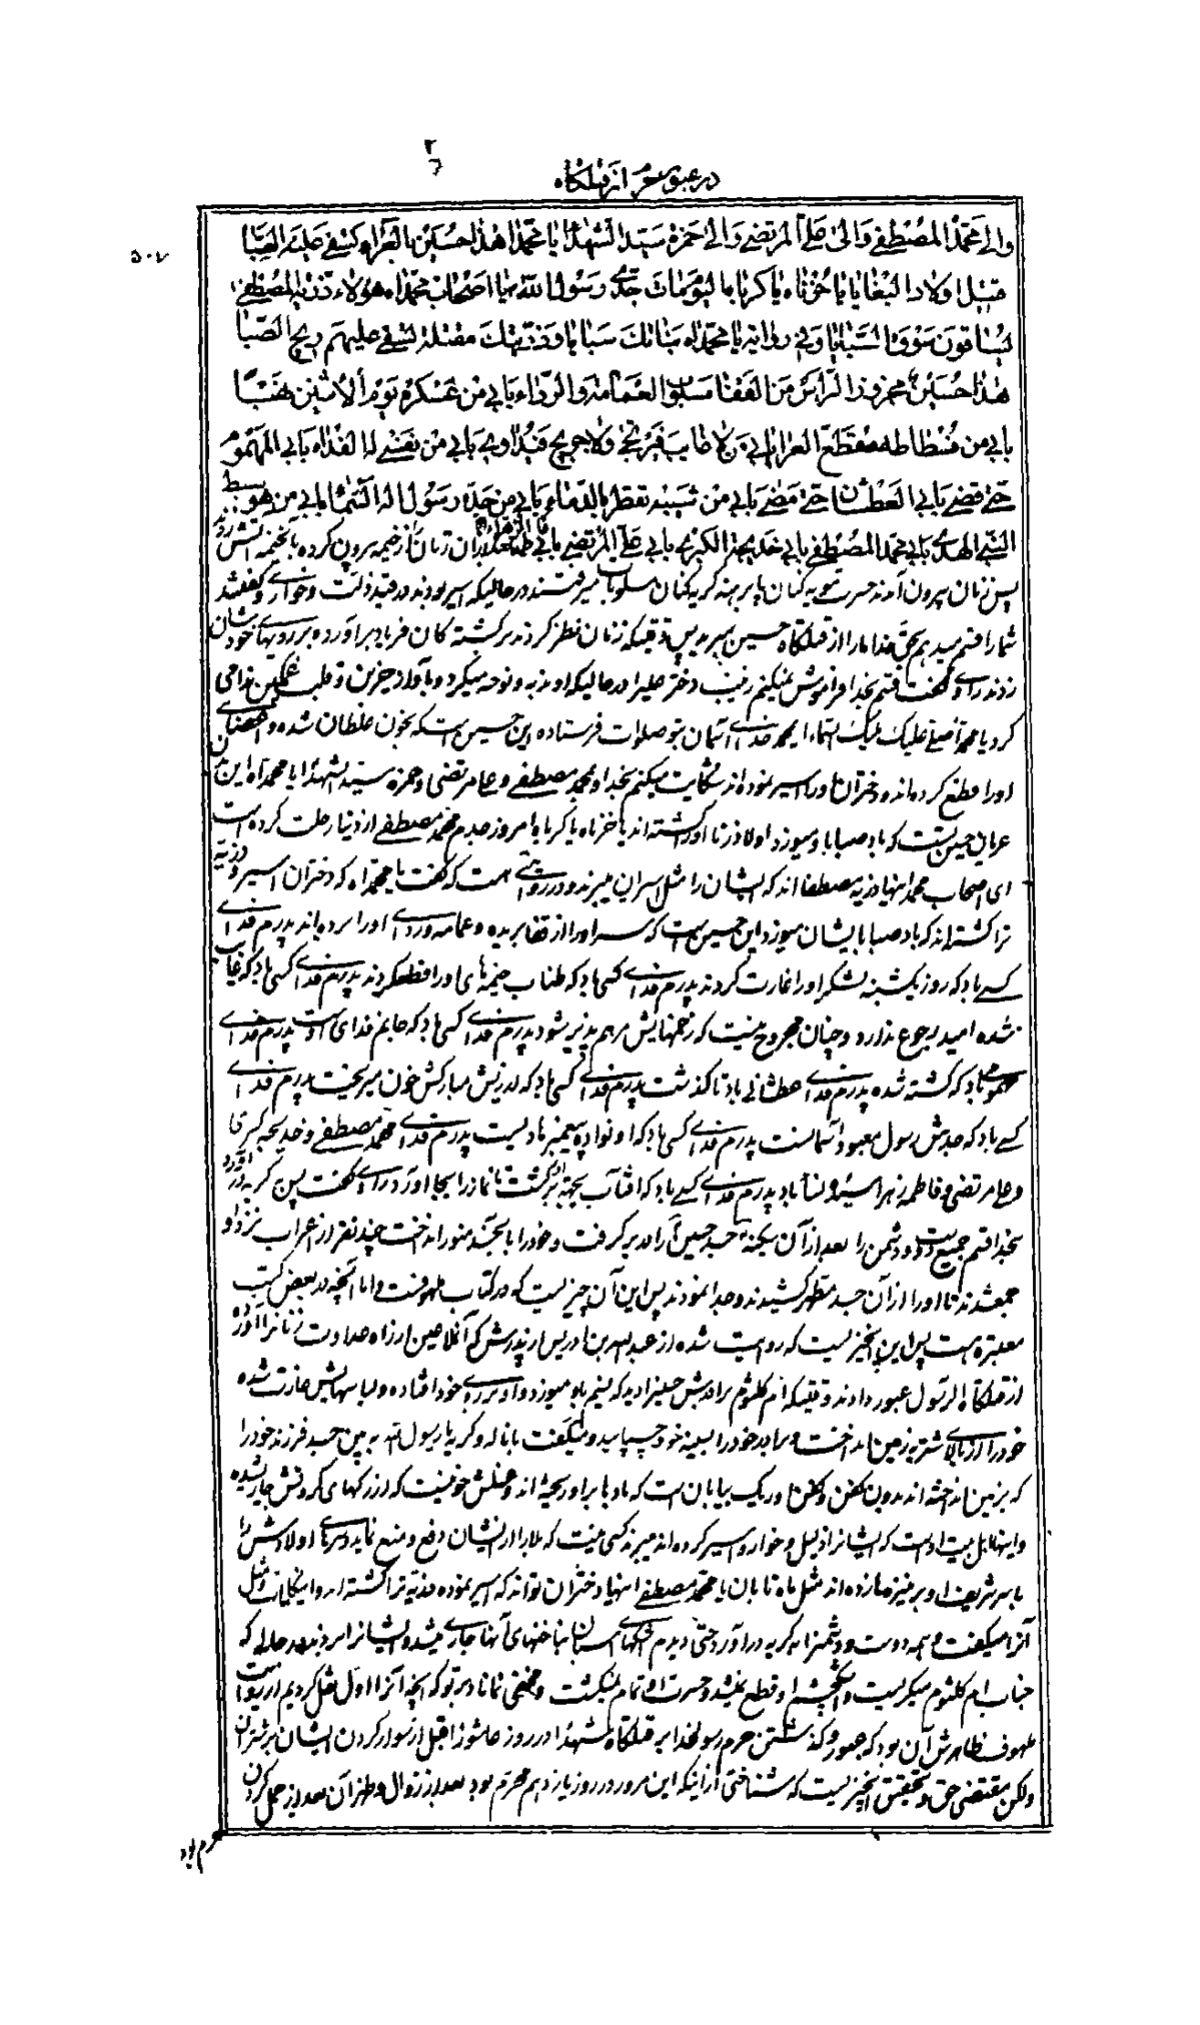 در عبور حرم از قتلگاه
۵۰۷
والی محمد المصطفی والی علی المرتضی والی حمزه سید الشهداء یا محمداه هذا حسین بالعراء تسفی علیه الصبا
قتیل اولاد البغایا یا حزناه یا کرباه الیوم مات جدی رسول الله یا اصحاب محمداه هؤلاء ذریة المصطفی
یساقون سوق السبایا و فی روایة یا محمداه بناتک سبایا و ذریتک مقتلة تسفی علیهم ریح الصبا
هذا حسین محزوز الراس من القفا مسلوب العمامة والرداء بابی من عسکره یوم الاثنین نهبا
بابی من فسطاطه مقطع العری بابی من لا غایب فیرتجی ولا جریح فیداوی بابی من نفسی له الفداء بابی المهموم
حتی قضی بابی العطشان حتی مضی بابی من شیبته تقطر بالدماء بابی من جده رسول اله السماء بابی من هو سبط
النبی الهدی بابی محمد المصطفی بابی خدیجة الکبری بابی علی المرتضی بابی فاطمة الزهراء زنان را از خیمه بیرون کرده بانخیمه آتش زدند
پس زنان بیرون آمدند حسرت مویه کنان پا برهنه گریه کنان مسلوب میرفتند در حالیکه اسیر بودند در قید ذلت و خواری و گفتند
شما را قسم میدهم بحق خدا ما را از قتلگاه حسین ببرید پس وقتیکه زنان نظر کردند بر کشته کان فریاد برآورده بر رویهای خودشان
زدند راوی گفت قسم بخدا فراموش نمیکنم زینب دختر علی را در حالیکه او ندبه و نوحه میکرد و بآواز حزین و قلب غمگین ندا می
کرد یا محمداه صلی علیک ملیک السماء ای محمد خدای آسمان بتو صلوات فرستاده این حسین است که بخون غلطان شده و اعضای
او را قطع کرده اند و دختران او را اسیر نموده اند شکایت میکنم بخدا و محمد مصطفی و علی مرتضی و حمزه سید الشهداء یا محمداه این
عریان حسین تست که باد صبا باو میوزد اولاد زنا او را کشته اند یا حزناه یا کرباه امروز جدم محمد مصطفی از دنیا رحلت کرده است
ای اصحاب محمد اینها ذریه مصطفا اند که ایشان را مثل اسیران میبرند و در روایتی است که گفت یا محمداه که دختران اسیر و ذریه
ترا کشته اند که باد صبا بایشان میوزد این حسین است که سر او را از قفا بریده و عمامه و ردای او را برده اند پدرم فدای
کسی باد که روز یکشنبه لشکر او را غارت کردند پدرم فدای کسی باد که طناب خیمه های او را قطع کردند پدرم فدای کسی باد که غایب
نشده امید برجوع ندارد و چنان مجروح نیست که زخمهایش مرهم پذیر شود پدرم فدای کسی باد که جانم فدای او است پدرم فدای
مهموم باد که کشته شده پدرم فدای عطشانی باد تا گذشت پدرم فدای کسی باد که از ریش مبارکش خون میریخت پدرم فدای
کسی باد که جدش رسول معبود آسمانست پدرم فدای کسی باد که او نواده پیغمبر هادیست پدرم فدای محمد مصطفی و خدیجه کبری
و علی مرتضی و فاطمه زهرا سیده نساء باد پدرم فدای کسی باد که افتاب بجهة او برگشت تا نماز را بجا آورد راوی گفت پس گریه درآورد
بخدا قسم جمیع دوست و دشمن را بعد از آن سکینه جسد حسین را در بر گرفت و خود را بآنجسد منور انداخت چند نفر از اعراب نزد او
جمع شدند تا او را از آن جسد مطهر کشیدند و جدا نمودند پس این آن چیزیست که در کتاب ملهوفست و اما آنچه در بعض کتب
معتبره است پس این آنچیز است که روایت شده از عبدالله بن ادریس از پدرش که آنملاعین از راه عداوت زنانرا آورده
از قتلگاه آل رسول عبور دادند وقتیکه ام کلثوم برادرش حسین را دید که نسیم باو میوزد و او بر روی خود افتاده و لباسهایش غارت شده
خود را از بالای شتر بزمین انداخت و برادر خود را بسینه خود چسپانید و میگفت با ناله و گریه یا رسول الله به بین جسد فرزند خود را
که بزمین انداخته اند بدون کفن و کفن او ریک بیابان است که باد بر او ریخته اند و غسلش خونیست که از رگهای گردنش جاری شده
و اینها اهل بیت اوست که ایشانرا ذلیل و خوار و اسیر کرده اند میبرند کسی نیست که بلا را از ایشان دفع و منع نماید سرهای اولادش را
با سر شریف او بر نیزه ها زده اند مثل ماه تابان یا محمد مصطفی اینها دختران تواند که اسیر نموده ذریه ترا کشته اند و اینکلمات و مثل
آنرا میگفت و همه دوست و دشمن را بگریه درآورد حتی دیدم اشکهای اسبان بناخنهای آنها جاری میشد و ایشانرا میبردند در حالیکه
جناب ام کلثوم میگریست و اشک چشم او قطع نمیشد و حسرت او تمام نمیگشت و مخفی نماناد بر تو که آنچه آنرا اول نقل کردیم از روایت
ملهوف ظاهرش آن بود که عبور و گذشتن حرم رسولخدا بر قتلگاه شهدا در روز عاشورا قبل از سوار کردن ایشان بر شتران
ولکن مقتضی حق و تحقیق آنچیز است که شناختی آنرا اینکه این مرور در روز یازدهم محرم بود بعد از زوال و ظهر آن بعد از حمل کردن
حرم بود